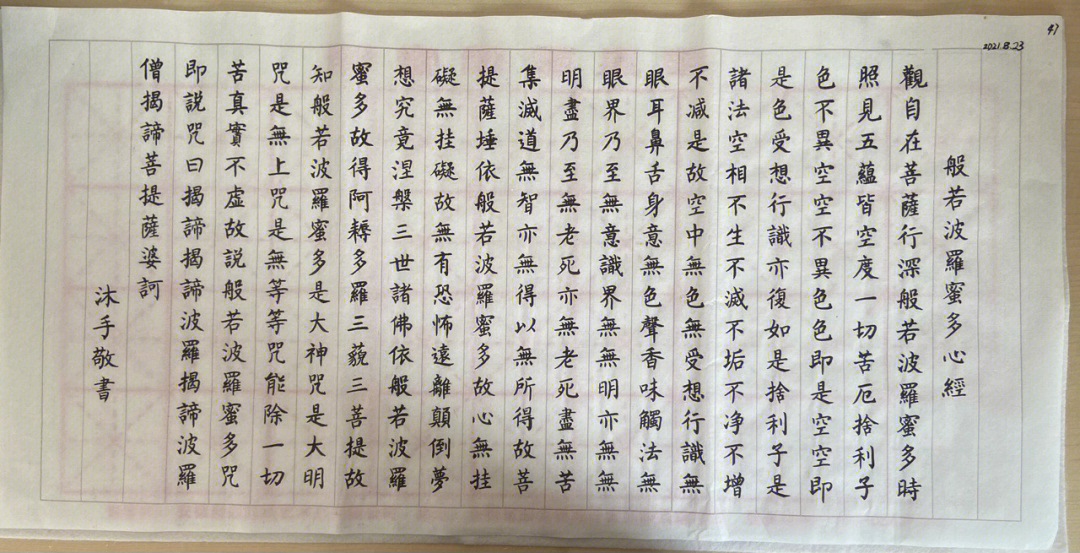 2021.8.23
般若波羅蜜多心經
觀自在菩薩行深般若波羅蜜多時
照見五蘊皆空度一切苦厄捨利子
色不異空空不異色色即是空空即
是色受想行識亦復如是捨利子是
諸法空相不生不滅不垢不净不增
不减是故空中無色無受想行識無
眼耳鼻舌身意無色聲香味觸法無
眼界乃至無意識界無無明亦無無
明盡乃至無老死亦無老死盡無苦
集滅道無智亦無得以無所得故菩
提薩埵依般若波羅蜜多故心無挂
礙無挂礙故無有恐怖遠離顛倒夢
想究竟涅槃三世諸佛依般若波羅
蜜多故得阿耨多羅三藐三菩提故
知般若波羅蜜多是大神咒是大明
咒是無上咒是無等等咒能除一切
苦真實不虛故説般若波羅蜜多咒
即説咒曰揭諦揭諦波羅揭諦波羅
僧揭諦菩提薩婆訶
沐手敬書